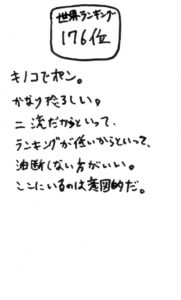 世界ランキング
176位
キノコでポン。
かなり
二流だからといって、
ランキングが低いからといって、
油断しない方がいい。
ここにいるのは意図的だ。